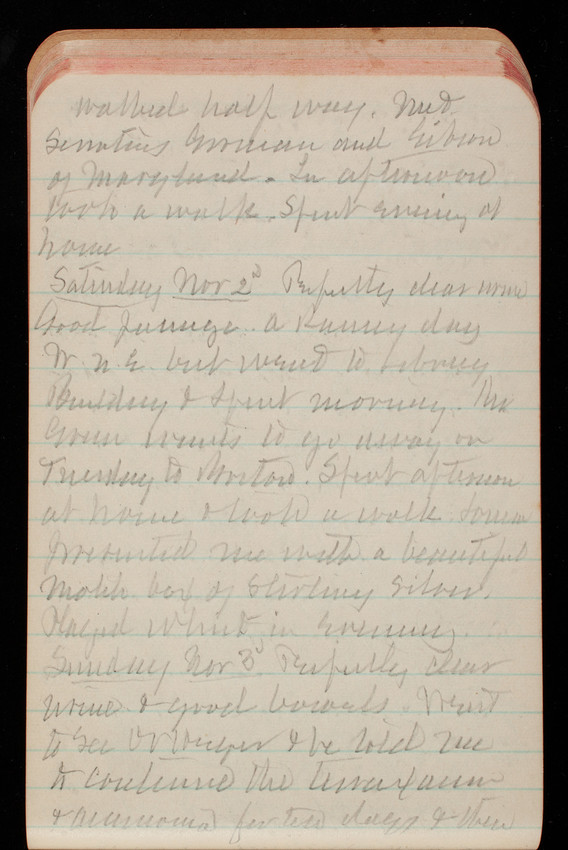 walked half way. Met
Senators Gorman and Gibson
of Maryland. In afternoon
took a walk. Spent evening at
home
Saturday Nov 2d Perfectly clear urine
Good passage. A rainy day
W. N. E. but went to Library
Building & spent morning. Mr
Green wants to go away on
Tuesday to Boston. Spent afternoon
at home & took a walk
presented me with a beautiful
match box of Sterling silver.
Played Whist in Evening.
Sunday Nov 3d Perfectly clear
urine & good bowels. Went
to see Dr & he told me
to continue the
& ammonia for ten days & then